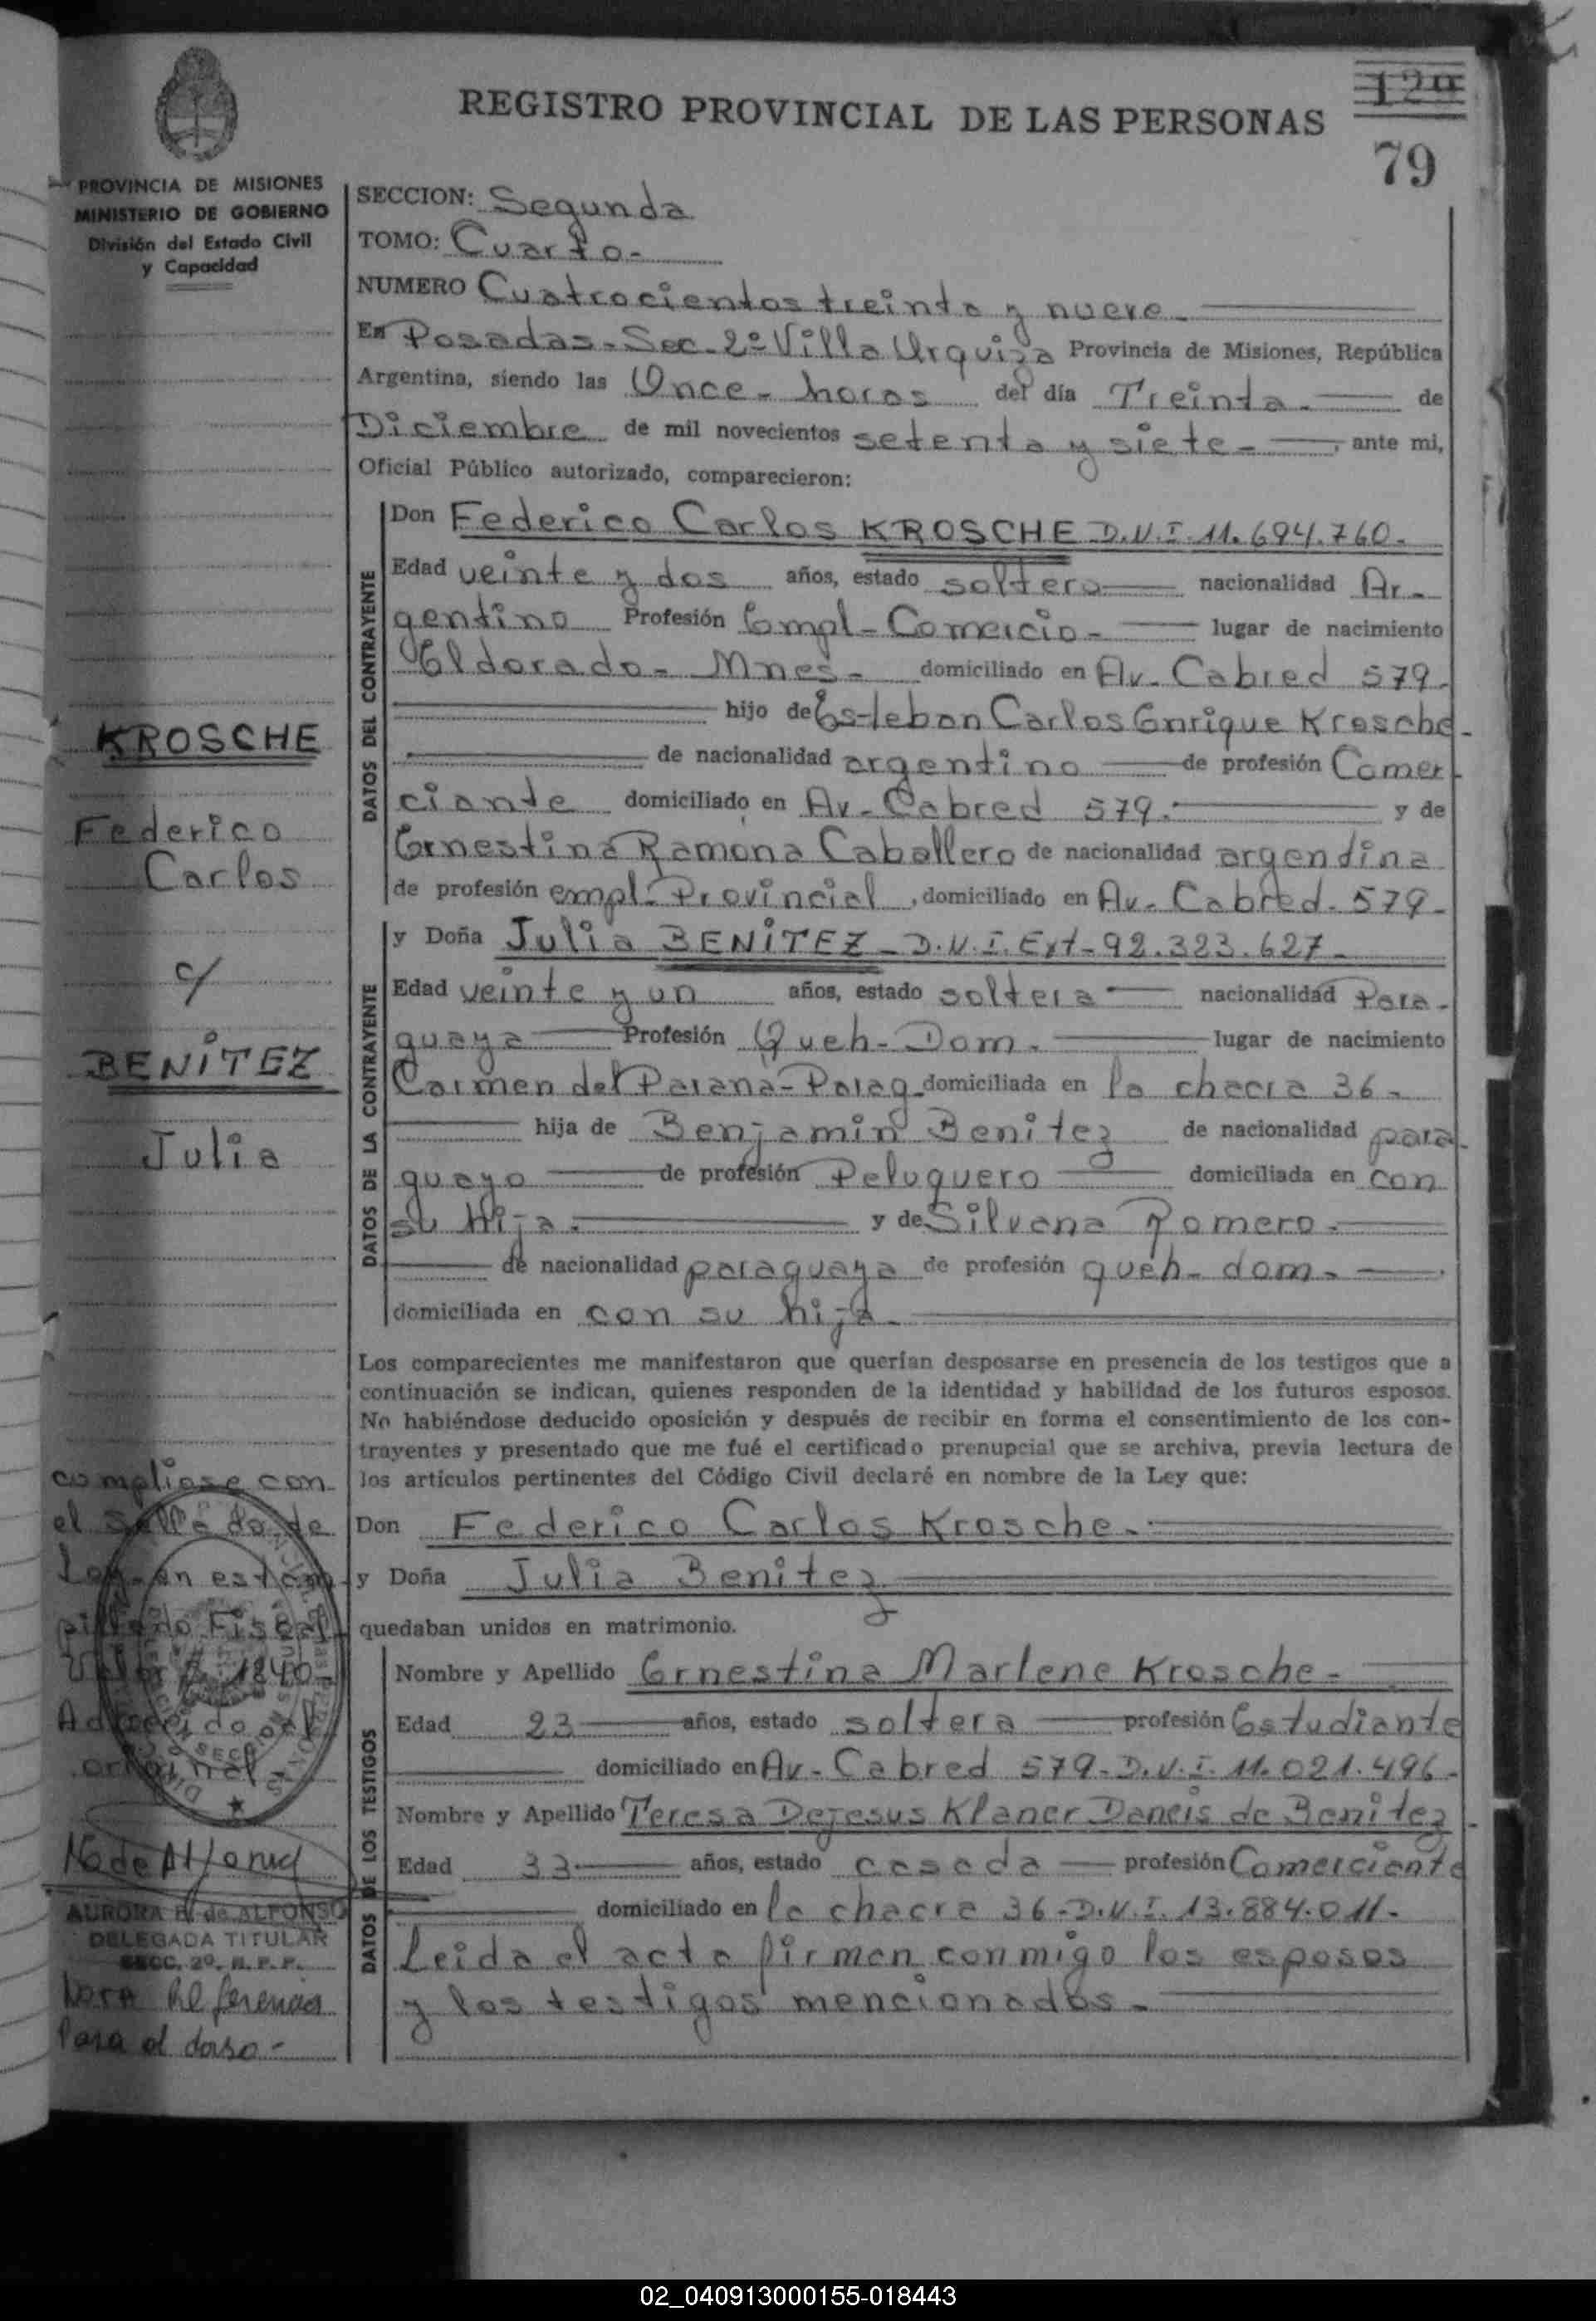 REGISTRO PROVINCIAL DE LAS PERSONAS
120
79
PROVINCIA DE MISIONES
MINISTERIO DE GOBIERNO
División del Estado Civil
y Capacidad
SECCION: Segunda
TOMO: Cuarto-
NUMERO Cuatrocientos treinta y nueve-
En Posadas-Sec-2º Villa Urquiza Provincia de Misiones, República
Argentina, siendo las Once-horas del día Treinta.- de
Diciembre de mil novecientos setenta y siete-, ante mi,
Oficial Público autorizado, comparecieron:
DATOS DEL CONTRAYENTE
Don Federico Carlos KROSCHE D.N.I. 11.694.760.
Edad veinte y dos años, estado soltero nacionalidad Ar-
gentino Profesión Empl-Comercio- lugar de nacimiento
Eldorado- Mnes- domiciliado en Av- Cabred 579-
hijo de Esteban Carlos Enrique Krosche-
de nacionalidad argentino de profesión Comer
ciante domiciliado en Av- Cabred 579.- y de
Ernestina Ramona Caballero de nacionalidad argentina
de profesión empl- Provincial, domiciliado en Av- Cabred. 579-
DATOS DE LA CONTRAYENTE
y Doña Julia BENÍTEZ- D.N.I. Ext- 92.323.627-
Edad veinte y un años, estado soltera- nacionalidad Para-
guaya Profesión Queh- Dom.- lugar de nacimiento
Carmen del Paraná-Parag. domiciliada en la chacra 36-
hija de Benjamin Benitez de nacionalidad para-
guayo de profesión Peluquero domiciliada en con
su hija.- y de Silvana Romero.-
de nacionalidad paraguaya de profesión queh- dom.-
domiciliada en con su hija-
Los comparecientes me manifestaron que querían desposarse en presencia de los testigos que a
continuación se indican, quienes responden de la identidad y habilidad de los futuros esposos.
No habiéndose deducido oposición y después de recibir en forma el consentimiento de los con-
trayentes y presentado que me fué el certificado prenupcial que se archiva, previa lectura de
los artículos pertinentes del Código Civil declaré en nombre de la Ley que:
Don Federico Carlos Krosche.-
y Doña Julia Benitez
quedaban unidos en matrimonio.
DATOS DE LOS TESTIGOS
Nombre y Apellido Ernestina Marlene Krosche-
Edad 23 años, estado soltera profesión Estudiante
domiciliado en Av- Cabred 579- D.N.I. 11.021.496-
Nombre y Apellido Teresa Dejesus Klaner Daneis de Benitez-
Edad 33- años, estado casada profesión Comerciante
domiciliado en la chacra 36- D.N.I. 13.884.011-
Leida el acta firman conmigo los esposos
y los testigos mencionados-
KROSCHE
Federico
Carlos
c/
BENÍTEZ
Julia
compliose con
el Sellado de
Ley en estam-
pillado Fiscal
Valor $ 1840
Adherido al
original
SECCION
AURORA N. de ALFONSO
DELEGADA TITULAR
SECC. 2º. R. P. P.
Nora Referencia
Pasa al dorso-
02_040913000155-018443